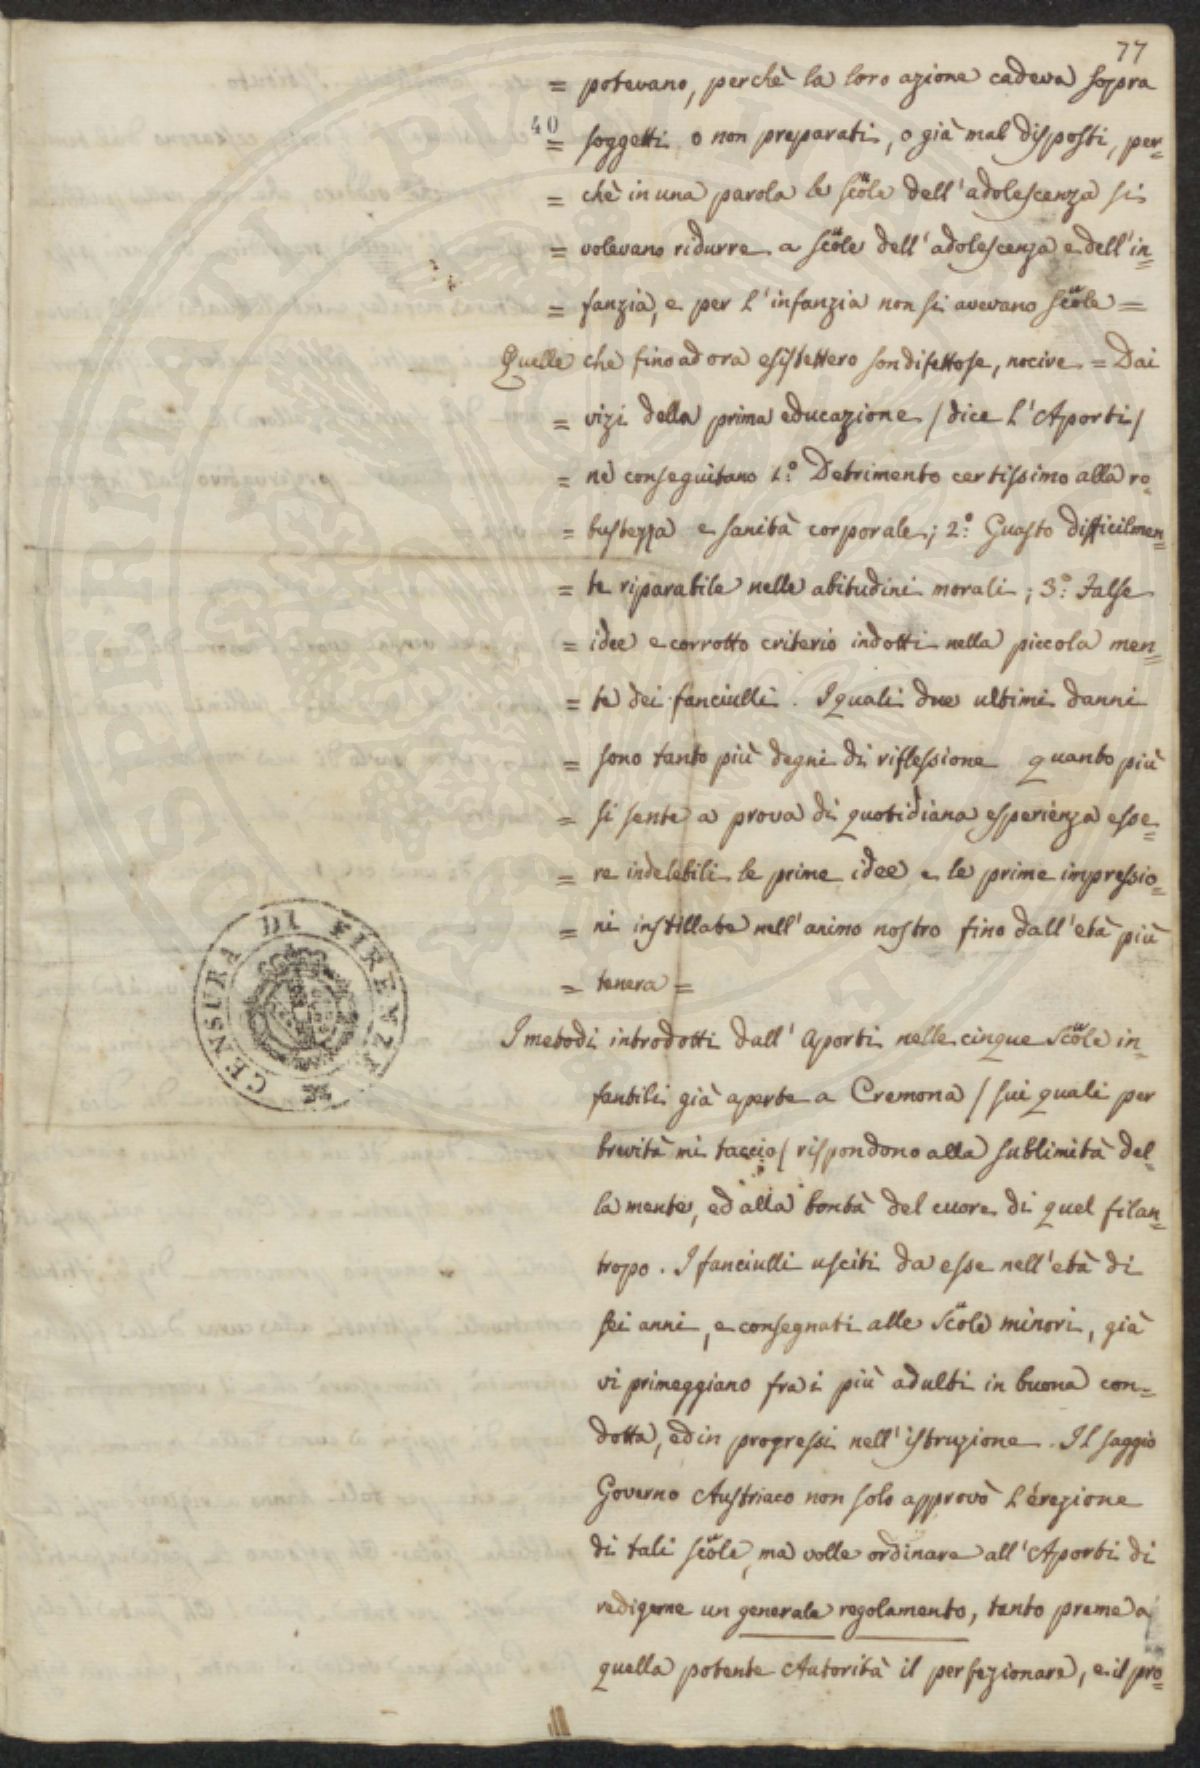 77
= potevano, perchè la loro azione cadeva sopra
40
= soggetti o non preparati, o già mal disposti, per=
= chè in una parola le scuole dell'adolescenza si
= volevano ridurre a scuole dell'adolescenza e dell'in=
= fanzia, e per l'infanzia non si avevano scuole =
Quelle che fino ad ora esistettero son difettose, nocive = Dai
= vizi della prima educazione / dice l'Aporti /
= ne conseguitano 1.° Detrimento certissimo alla ro=
= bustezza e sanità corporale; 2.° Guasto difficilmen=
= te riparabile nelle abitudini morali; 3.° False
= idee e corrotto criterio indotti nella piccola men=
= te dei fanciulli. I quali due ultimi danni
= sono tanto più degni di riflessione quanto più
= si sente a prova di quotidiana esperienza esse=
= re indelebili le prime idee e le prime impressio=
= ni instillate nell'animo nostro fino dall'età più
= tenera =
I metodi introdotti dall'Aporti nelle cinque scuole in=
fantili già aperte a Cremona / sui quali per
brevità mi taccio / rispondono alla sublimità del=
la mente, ed alla bontà del cuore di quel filan=
tropo. I fanciulli usciti da esse nell'età di
sei anni, e consegnati alle scuole minori, già
vi primeggiano fra i più adulti in buona con=
dotta, ed in progressi nell'istruzione. Il saggio
Governo Austriaco non solo approvò l'erezione
di tali scuole, ma volle ordinare all'Aporti di
redigerne un generale regolamento, tanto preme a
quella potente Autorità il perfezionare, e il pro=
CENSURA DI FIRENZE